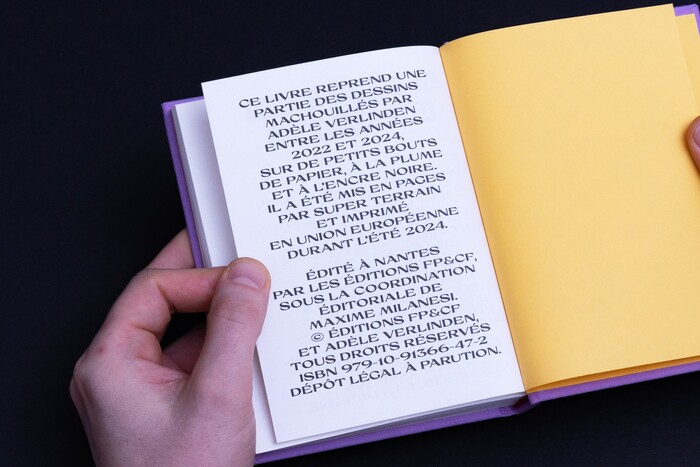 CE LIVRE REPREND UNE
PARTIE DES DESSINS
MACHOUILLÉS PAR
ADÈLE VERLINDEN
ENTRE LES ANNÉES
2022 ET 2024,
SUR DE PETITS BOUTS
DE PAPIER, À LA PLUME
ET À L'ENCRE NOIRE.
IL A ÉTÉ MIS EN PAGES
PAR SUPER TERRAIN
ET IMPRIMÉ
EN UNION EUROPÉENNE
DURANT L'ÉTÉ 2024.
ÉDITÉ À NANTES
PAR LES ÉDITIONS FP&CF,
SOUS LA COORDINATION
ÉDITORIALE DE
MAXIME MILANESI.
© ÉDITIONS FP&CF
ET ADÈLE VERLINDEN,
TOUS DROITS RÉSERVÉS
ISBN 979-10-91366-47-2
DÉPÔT LÉGAL À PARUTION.